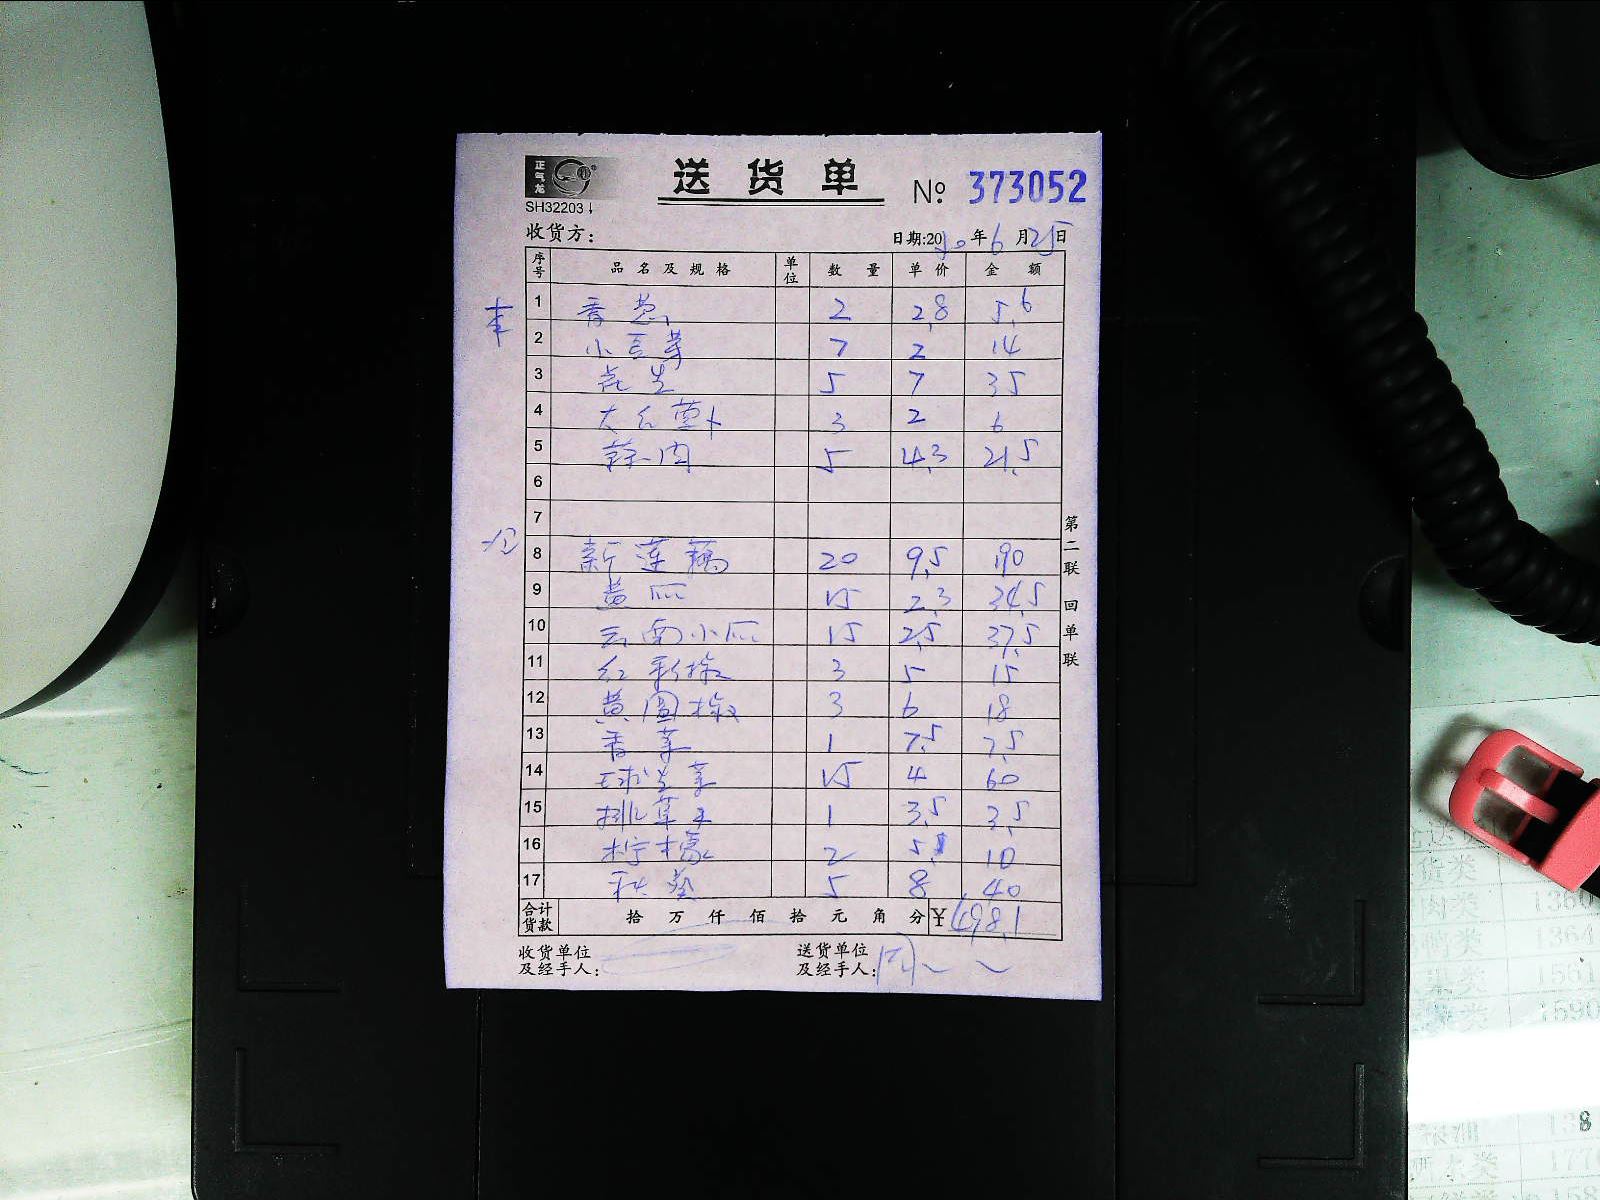 正气龙
送货单 № 373052
SH32203
收货方: 日期:20 年6月25日
序号 品名及规格 单位 数量 单价 金额
1 香葱 2 2.8 5.6
2 小豆芽 7 2 14
3 花生 5 7 35
4 大红萝卜 3 2 6
5 蒜肉 5 4.3 21.5
6
7
8 新莲藕 20 9.5 190
9 黄瓜 15 2.3 34.5
10 云南小瓜 15 2.5 37.5
11 红彩椒 3 5 15
12 黄圆椒 3 6 18
13 香菜 1 7.5 7.5
14 球生菜 15 4 60
15 排草王 1 3.5 3.5
16 柠檬 2 5 10
17 秋葵 5 8 40
合计货款 拾 万 仟 佰 拾 元 角 分 ¥498.1
收货单位及经手人: 送货单位及经手人:
第二联 回单联
肉类 1360
1364
果类 1561
类 1590